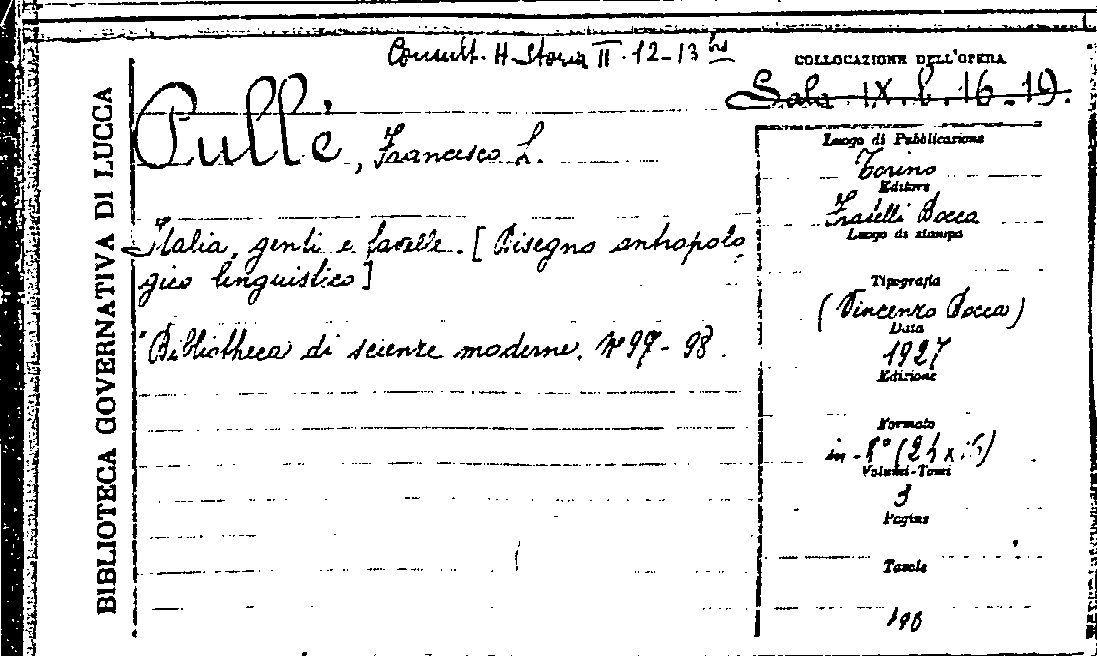 Consult. H Storia II. 12-13 bis
COLLOCAZIONE DELL'OPERA
Sala IX. b. 16-19.
BIBLIOTECA GOVERNATIVA DI LUCCA
Pullè, Francesco L.
Italia, genti e favelle. [Disegno antropolo
gico linguistico]
Bibliotheca di scienze moderne. No 97-98.
Luogo di Pubblicazione
Torino
Editore
Fratelli Bocca
Luogo di stampa
Tipografia
(Vincenzo Bocca)
Data
1927
Edizione
Formato
in-8° (24 x
Volumi-Tomi
3
Pagine
Tavole